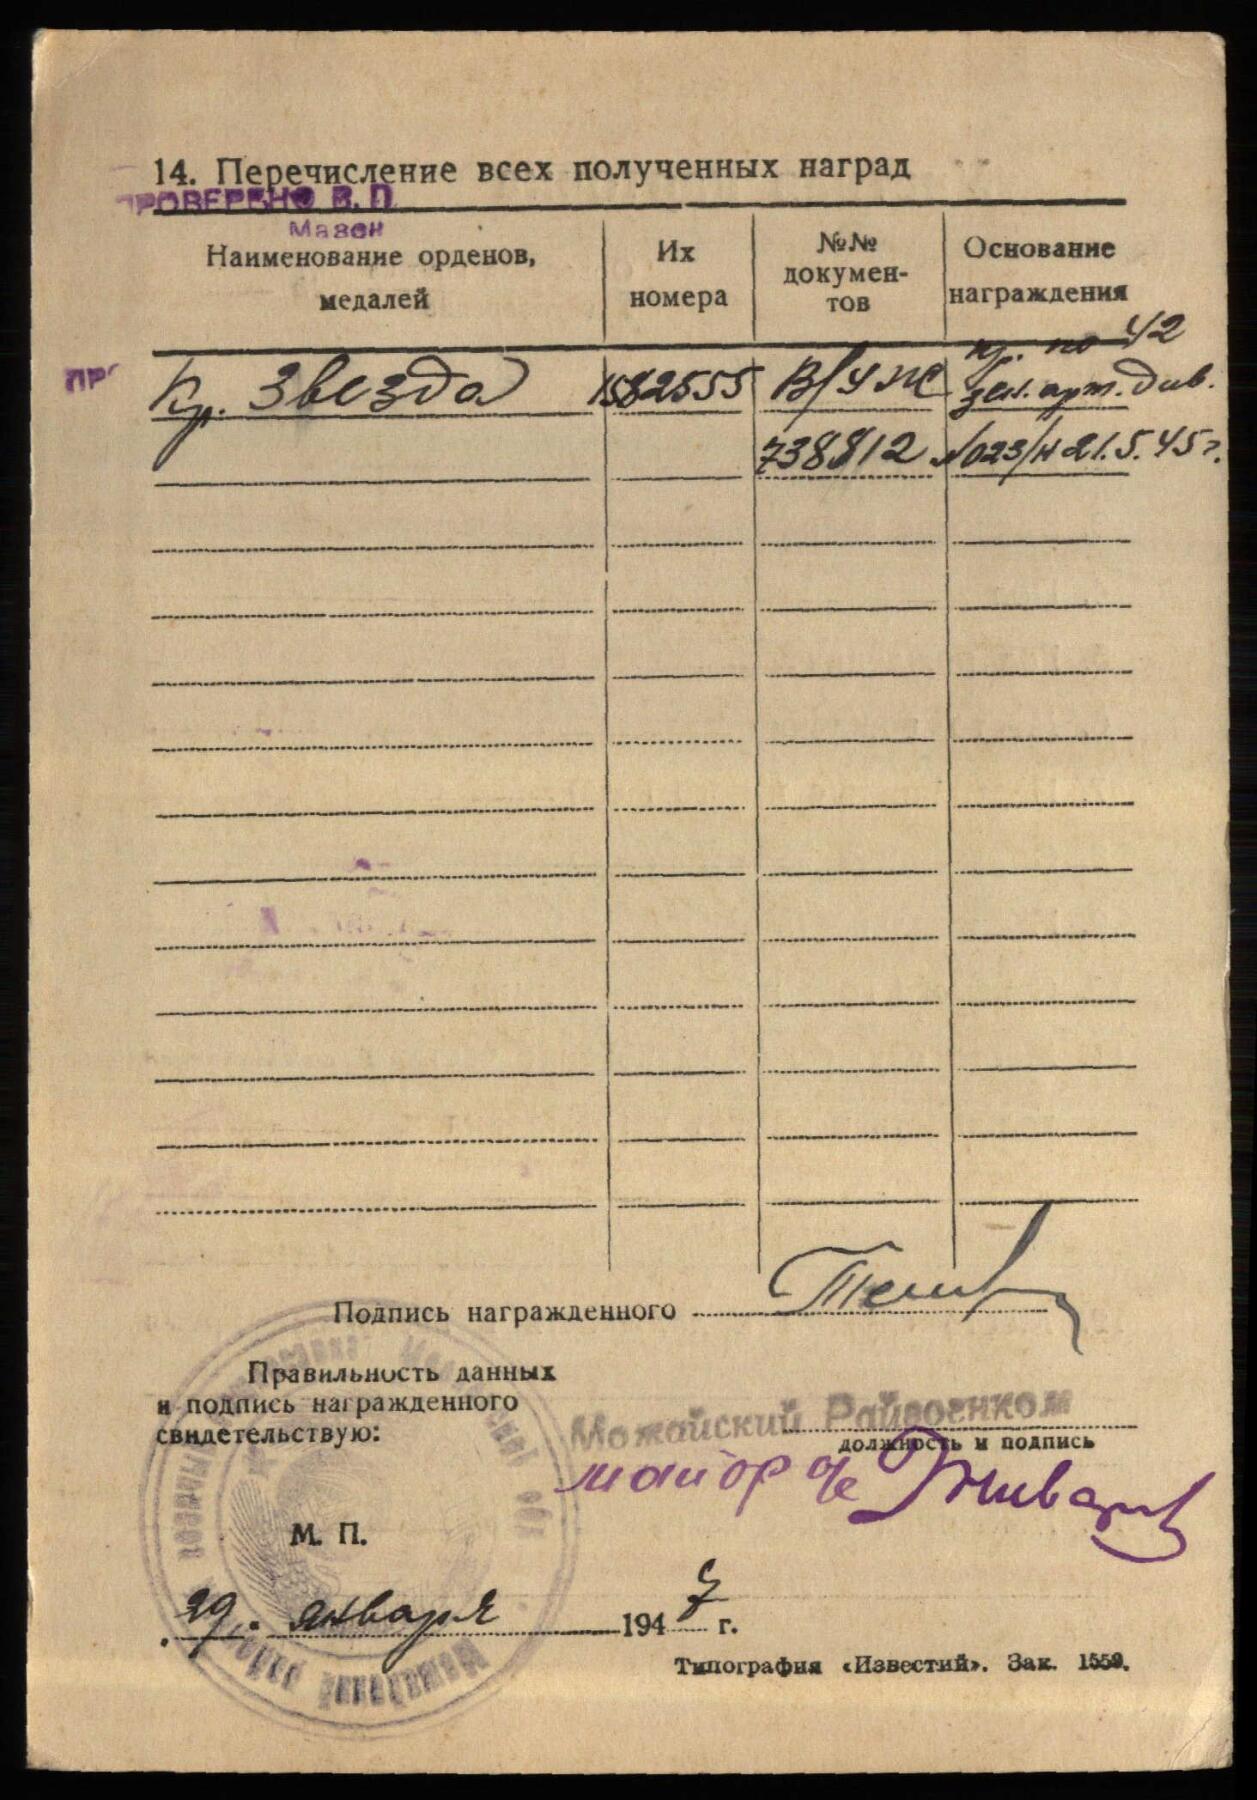 14. Перечисление всех полученных наград
ПРОВЕРЕНО В. П.
Мазен
Наименование орденов, медалей
Их номера
№№ документов
Основание награждения
Кр. Звезда
1582555
В/УЖ
пр. по 42
зен. арт. див.
738812
№023/н 21.5.45г.
Подпись награжденного
Правильность данных
и подпись награжденного
свидетельствую:
Можайский Райвоенком
должность и подпись
майор а/с
М. П.
29. января 1947 г.
Типография «Известий». Зак. 1559.